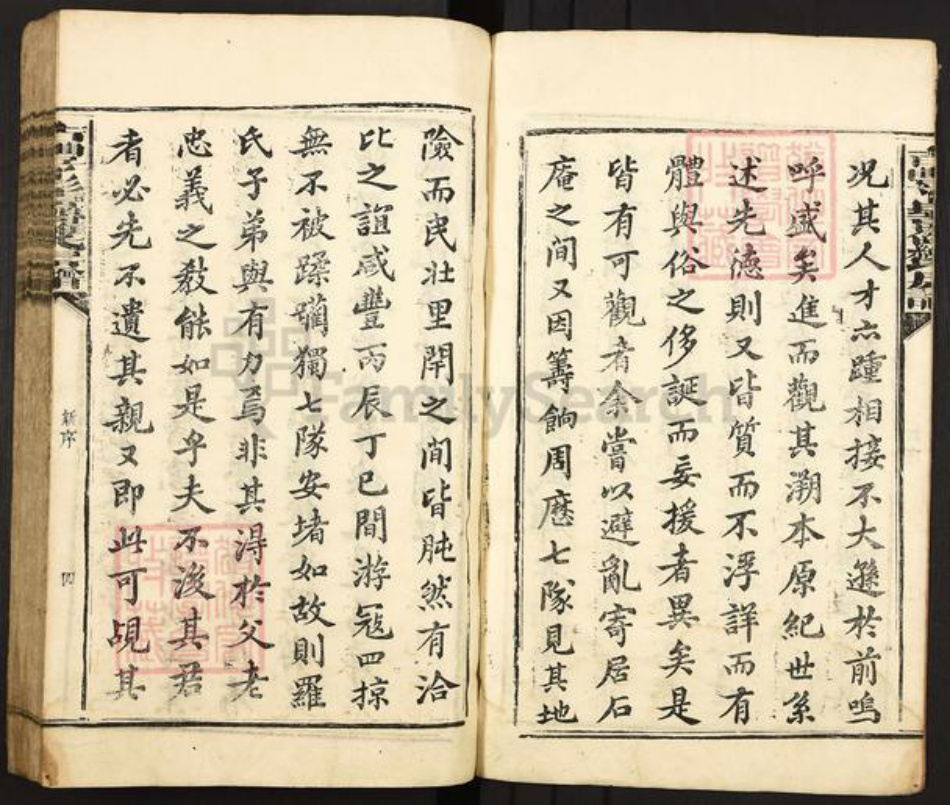 况其人才亦踵相接不大遜於前嗚
呼盛矣進而觀其溯本原紀世系
述先德則又皆質而不浮詳而有
體與俗之侈誕而妄援者異矣是
皆有可觀者余嘗以避亂寄居石
庵之間又因籌餉周歷七隊見其地
險而民壯里閈之間皆肫然有洽
比之誼咸豐丙辰丁巳間游寇四掠
無不被蹂躪獨七隊安堵如故則羅
氏子弟與有力焉非其淂於父老
忠義之教能如是乎夫不後其君
者必先不遺其親又即此可覘其
新序
四
FamilySearch